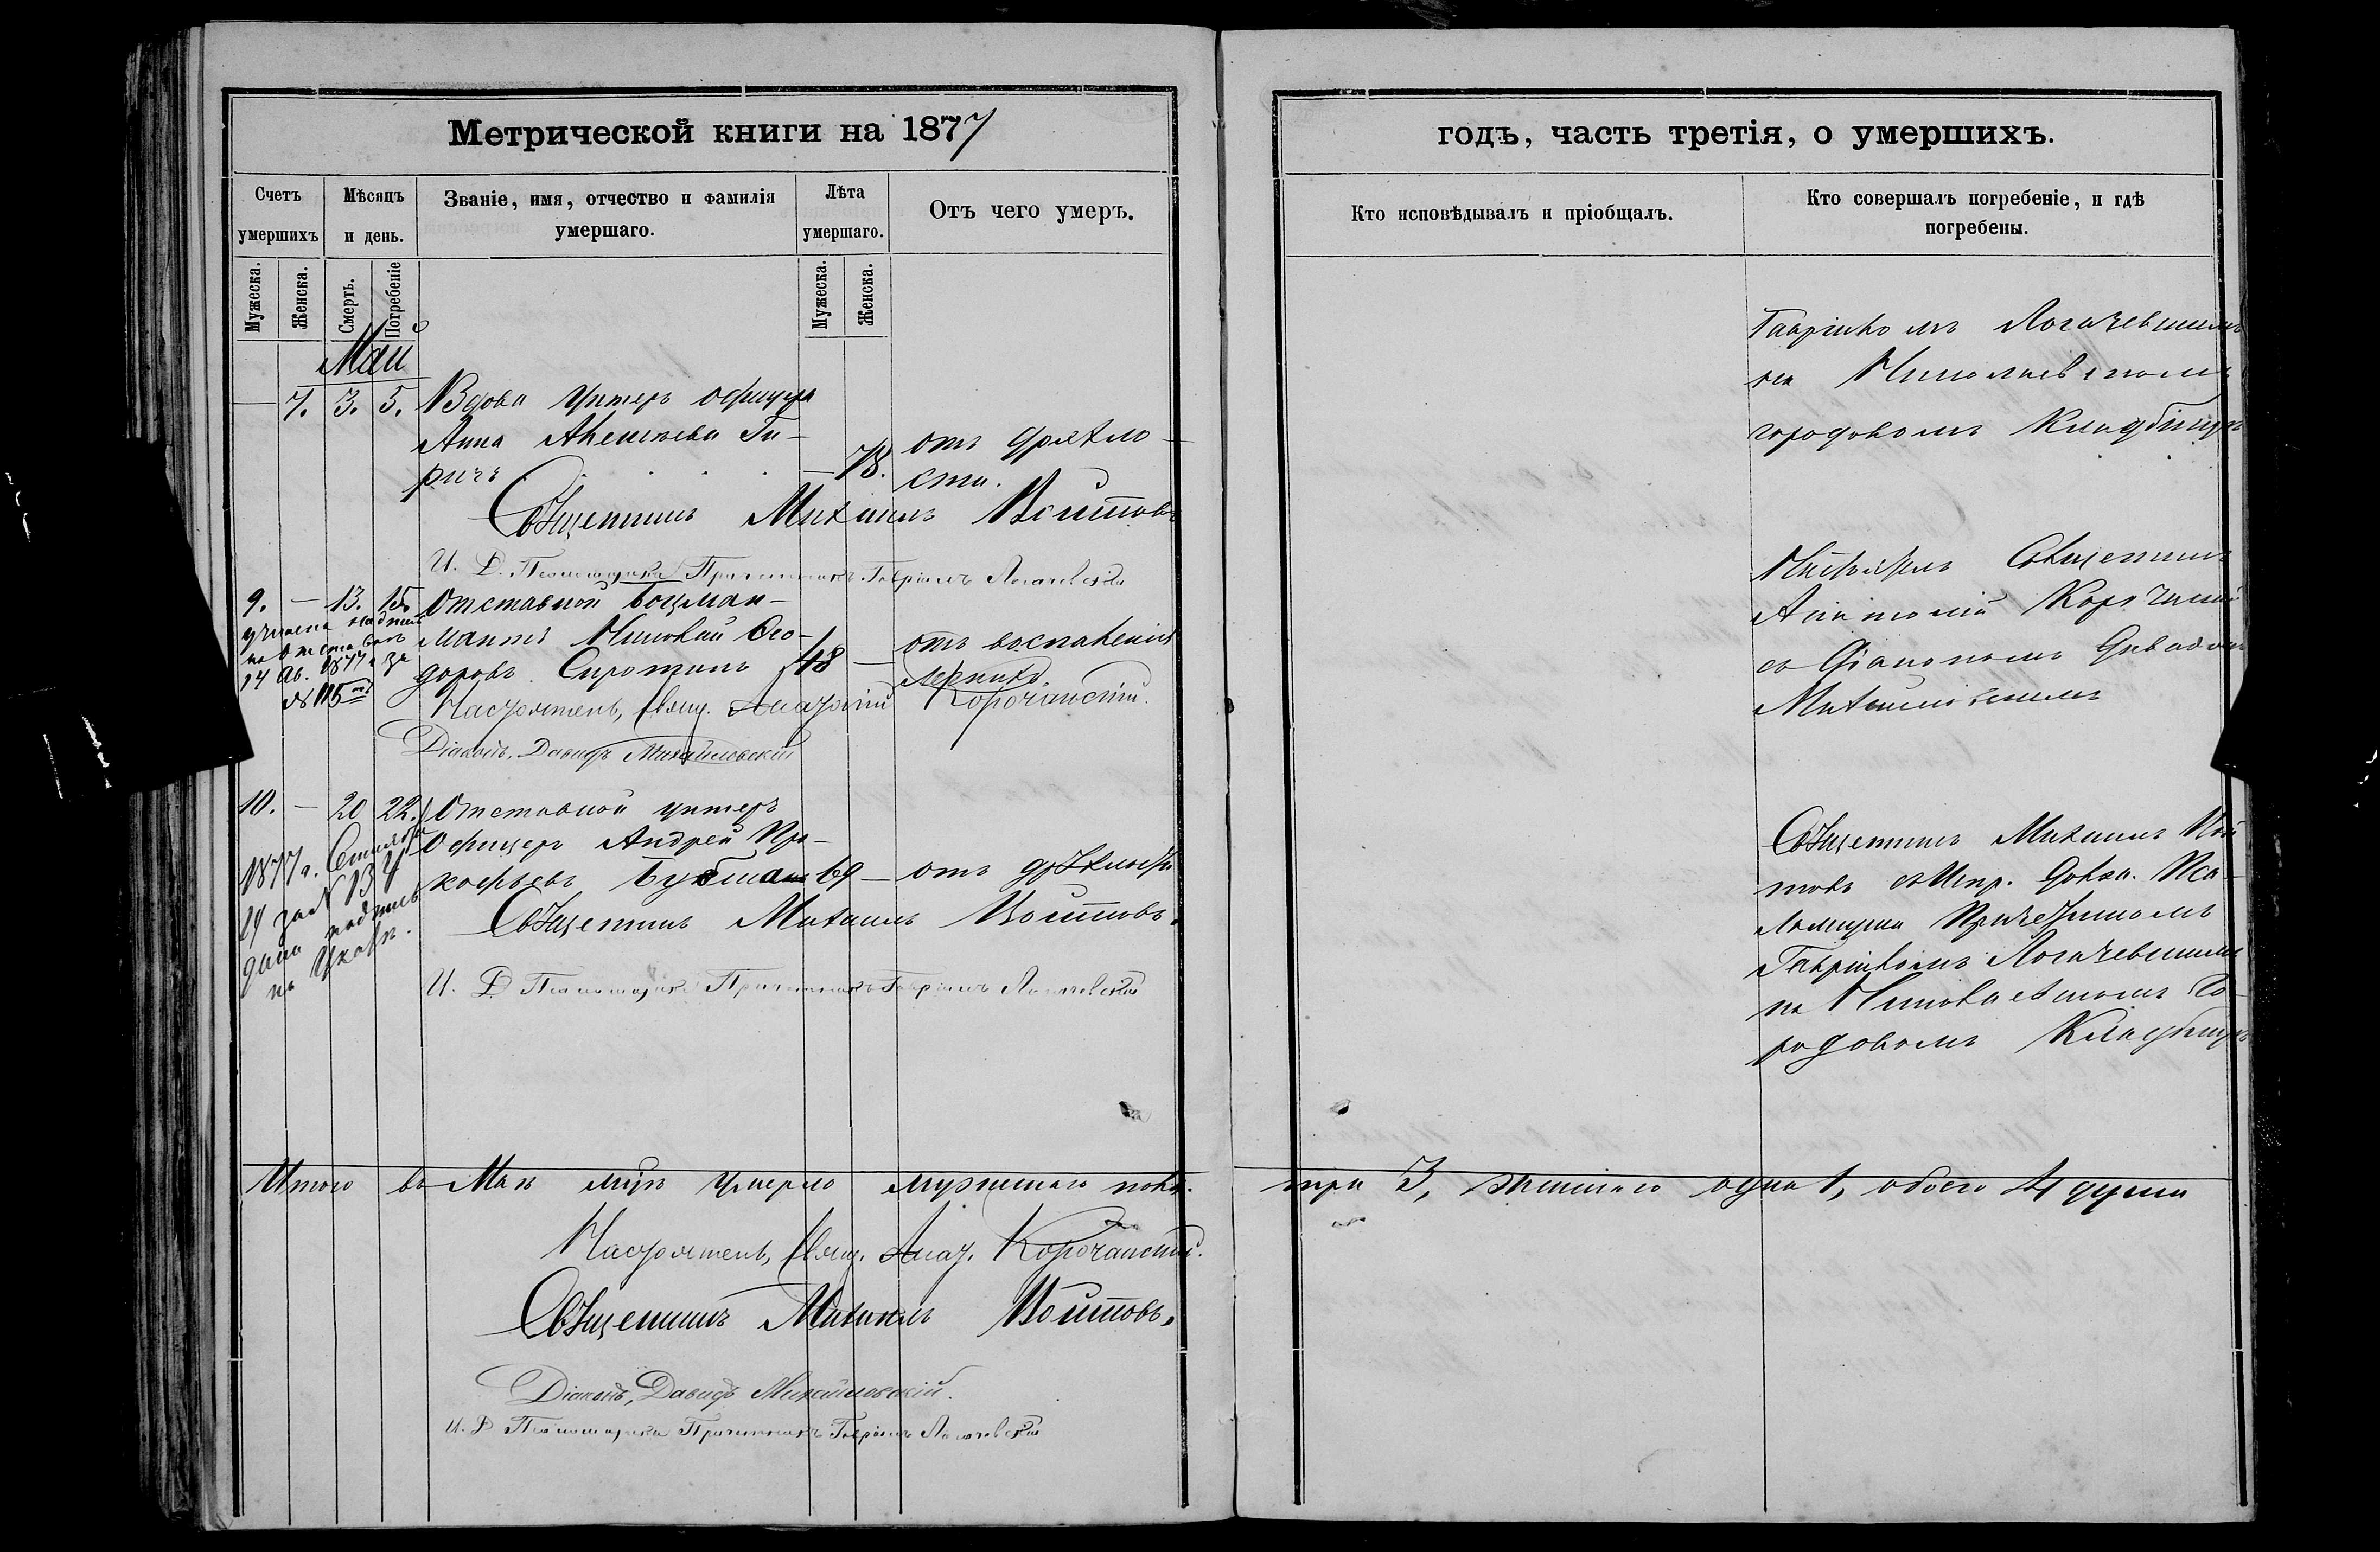 Метрической книги на 1877
Счетъ умершихъ
Мѣсяцъ и день.
Званіе, имя, отчество и фамилія умершаго.
Лѣта умершаго.
Отъ чего умеръ.
Мужеска.
Женска.
Смерть.
Погребеніе
Мужеска.
Женска.
Май
— 7. 3. 5. Вдова Унтеръ офицера
Анна Алексѣева Ги-
ричъ — 78. отъ дряхло-
сти.
Священникъ Михаилъ Войтовъ
И. Д. Псаломщика Причетникъ Гавріилъ Логачевскій
9. — 13. 15. Отставной боцман-
матъ Николай Ѳео-
доровъ Сиротинъ 48 — отъ воспаленія
легкихъ.
14 Ав. 1877 г. за
№ 115
Настоятель, Свящ. Анатолій Корочанскій.
Діаконъ, Давидъ Михайловскій
10. — 20 22. Отставной унтеръ
Офицеръ Андрей Про-
кофьевъ 69 — отъ дряхлости
1877 г. Сентября
29 за №
дана надпись
на Указѣ.
Священникъ Михаилъ Войтовъ.
И. Д. Псаломщика Причетникъ Гавріилъ Логачевскій
Итого въ Маѣ мцѣ умерло мужескаго пола
Настоятель, Свящ. Анат. Корочанскій.
Священникъ Михаилъ Войтовъ.
Діаконъ, Давидъ Михайловскій.
И. Д. Псаломщика Причетникъ Гавріилъ Логачевскій
годъ, часть третія, о умершихъ.
Кто исповѣдывалъ и пріобщалъ.
Кто совершалъ погребеніе, и гдѣ погребены.
Гавріиломъ Логачевскимъ
на Николаевскомъ
городовомъ Кладбищѣ
Священникъ
Анатолій Корочанскій
съ Діакономъ Давидомъ
Михайловскимъ
Священникъ Михаилъ Вой-
товъ съ Испр. Должн. Пса-
ломщика Причетникомъ
Гавріиломъ Логачевскимъ
на Николаевскомъ Го-
родовомъ Кладбищѣ
три 3, женскаго одна 1, обоего 4 души